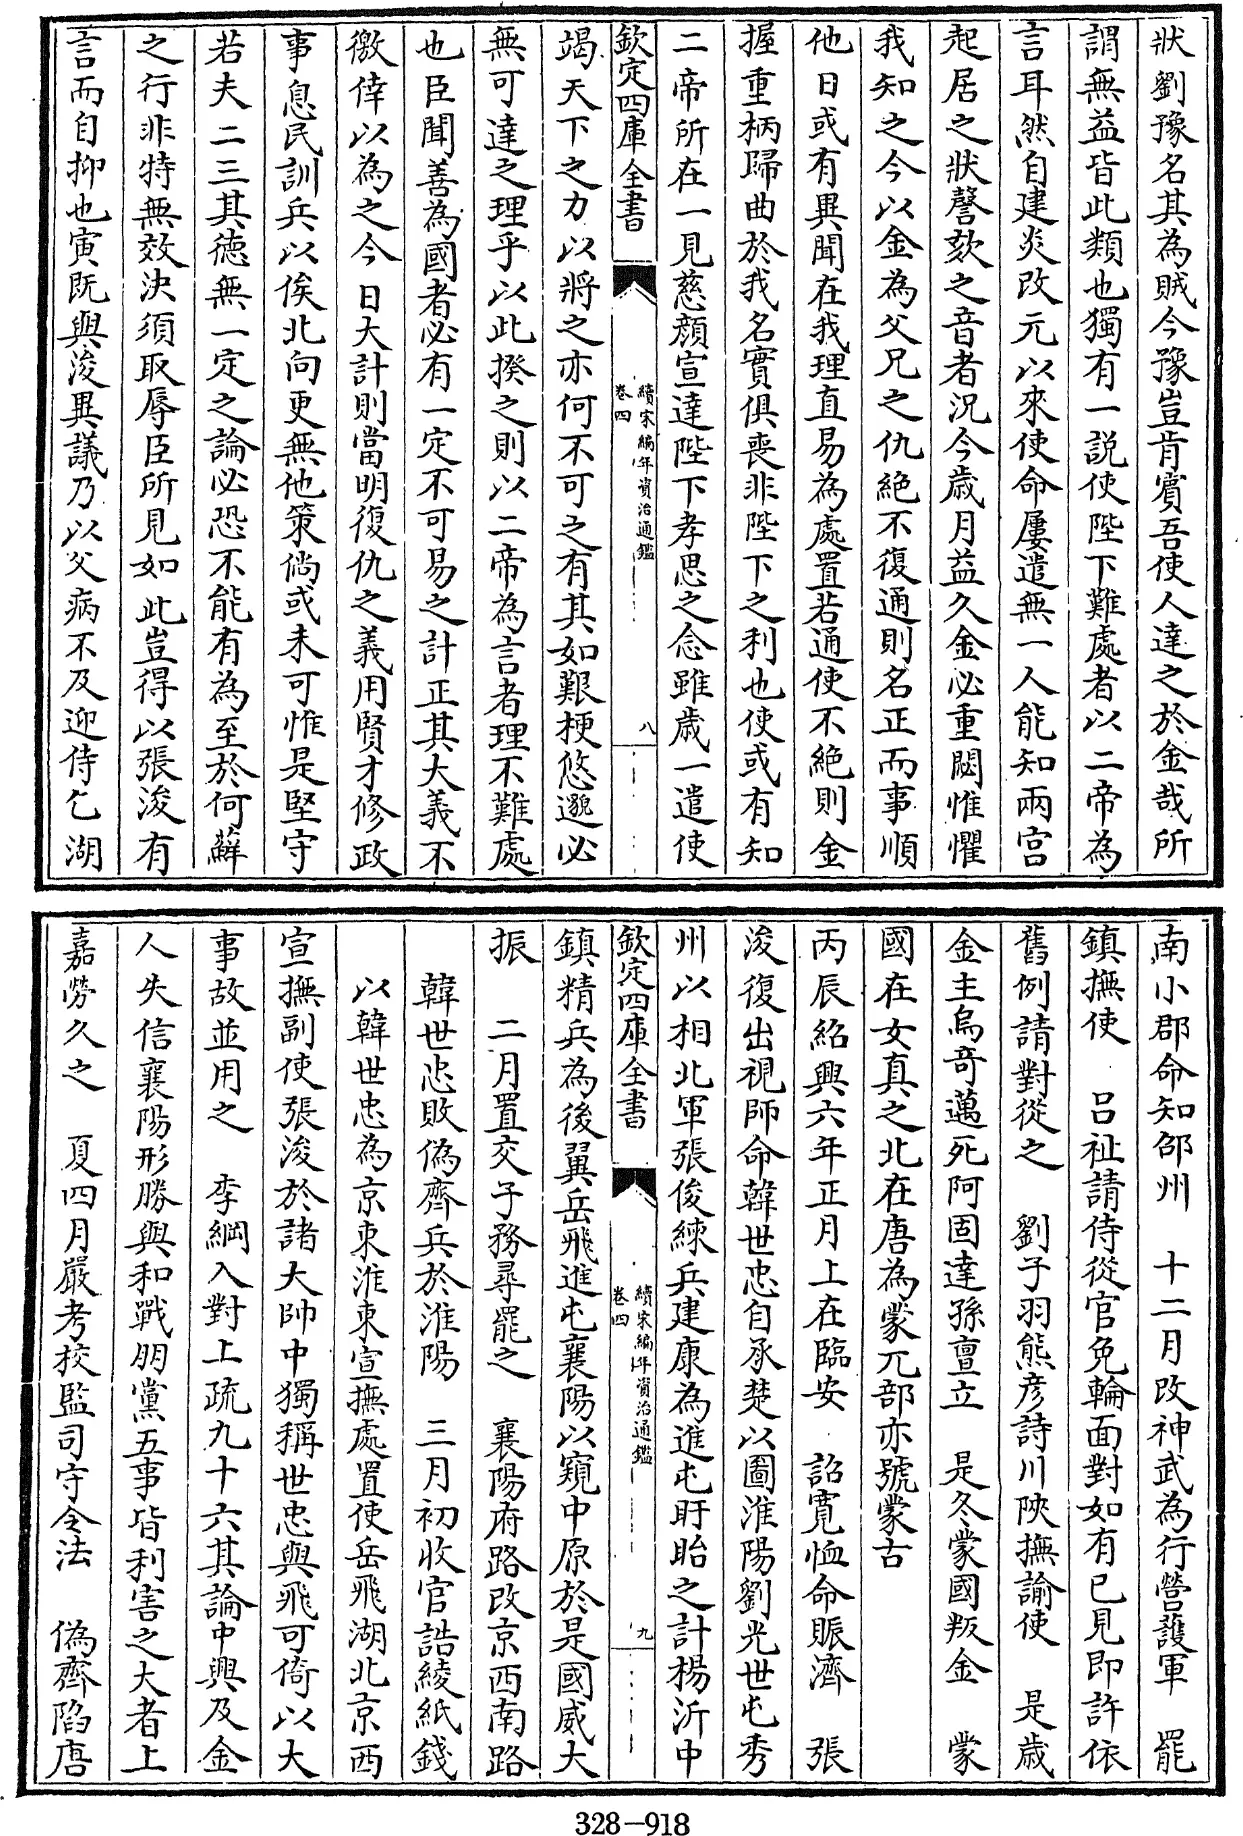 狀劉豫名其為賊今豫豈肯賓吾使人達之於金哉所
謂無益皆此類也獨有一說使陛下難處者以二帝為
言耳然自建炎改元以來使命屢遣無一人能知兩宫
起居之狀謦欬之音者況今歲月益久金必重閟惟懼
我知之今以金為父兄之仇絶不復通則名正而事順
他日或有異聞在我理直易為處置若通使不絶則金
握重柄歸曲於我名實俱喪非陛下之利也使或有知
二帝所在一見慈顔宣達陛下孝思之念雖歲一遣使
欽定四庫全書
續宋編年資治通鑑
卷四
八
竭天下之力以將之亦何不可之有其如艱梗悠邈必
無可達之理乎以此揆之則以二帝為言者理不難處
也臣聞善為國者必有一定不可易之計正其大義不
徼倖以為之今日大計則當明復仇之義用賢才修政
事息民訓兵以俟北向更無他策倘或未可惟是堅守
若夫二三其德無一定之論必恐不能有為至於何蘚
之行非特無效決須取辱臣所見如此豈得以張浚有
言而自抑也寅既與浚異議乃以父病不及迎侍乞湖
南小郡命知邵州　十二月改神武為行營護軍　罷
鎮撫使　吕祉請侍從官免輪面對如有己見即許依
舊例請對從之　劉子羽熊彦詩川陜撫諭使　是歳
金主烏奇邁死阿固達孫亶立　是冬蒙國叛金　蒙
國在女真之北在唐為蒙兀部亦號蒙古
丙辰紹興六年正月上在臨安　詔寛恤命賑濟　張
浚復出視師命韓世忠自承楚以圖淮陽劉光世屯秀
州以相北軍張俊練兵建康為進屯盱眙之計楊沂中
欽定四庫全書
續宋編年資治通鑑
卷四
九
鎮精兵為後翼岳飛進屯襄陽以窺中原於是國威大
振　二月置交子務尋罷之　襄陽府路改京西南路
韓世忠敗偽齊兵於淮陽　三月初收官誥綾紙錢
以韓世忠為京東淮東宣撫處置使岳飛湖北京西
宣撫副使張浚於諸大帥中獨稱世忠與飛可倚以大
事故並用之　李綱入對上疏九十六其論中興及金
人失信襄陽形勝與和戰朋黨五事皆利害之大者上
嘉勞久之　夏四月嚴考校監司守令法　偽齊陷唐
328-918